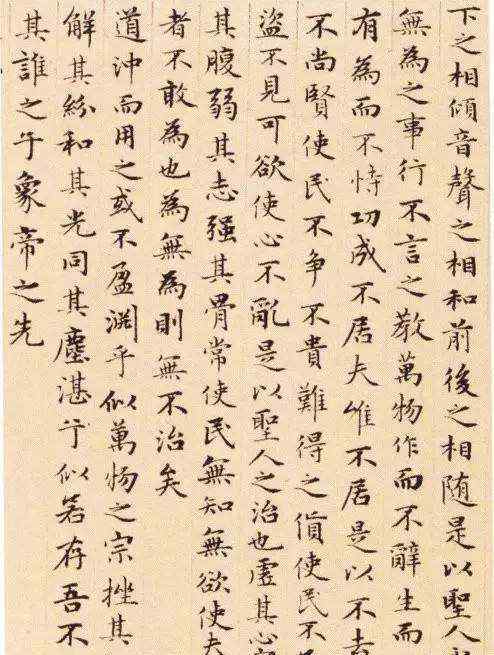 下之相傾音聲之相和前後之相隨是以聖人
無為之事行不言之教萬物作而不辭生而
有為而不恃功成不居夫唯不居是以不去
不尚賢使民不争不貴難得之貨使民不
盜不見可欲使心不亂是以聖人之治也虛其心
其腹弱其志强其骨常使民無知無欲使夫
者不敢為也為無為則無不治矣
道沖而用之或不盈淵乎似萬物之宗挫其
解其紛和其光同其塵湛乎似若存吾不
其誰之子象帝之先